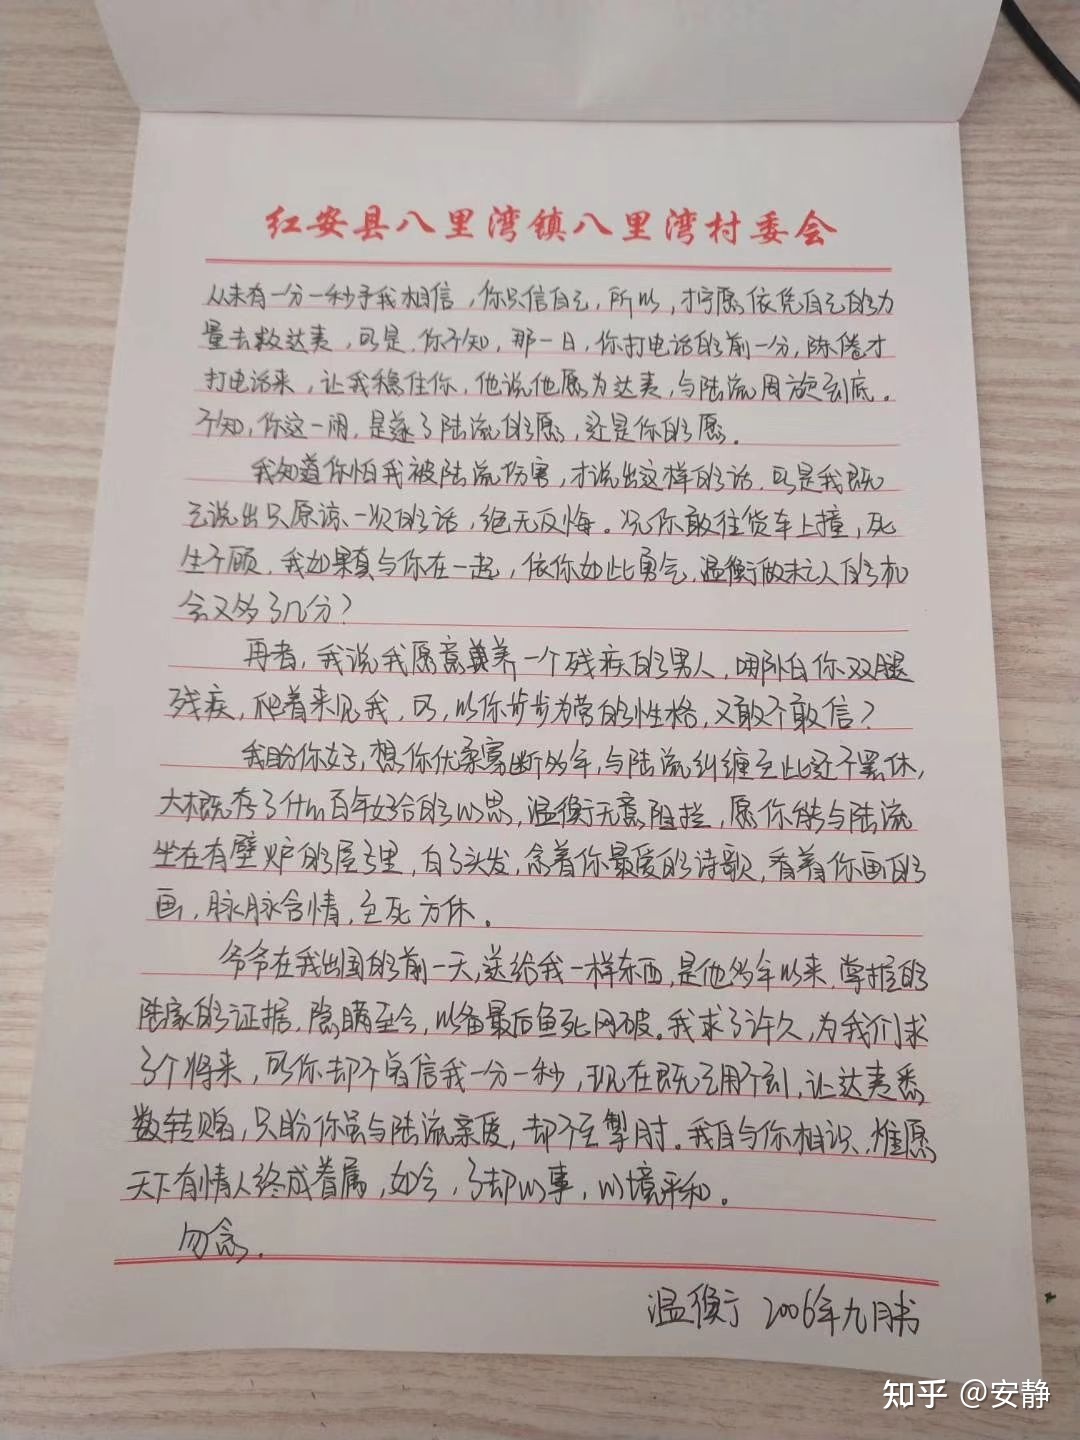 红安县八里湾镇八里湾村委会
从未有一分一秒予我相信，你只信自己，所以，才宁愿依凭自己的力
量去救达夷，可是，你不知，那一日，你打电话的前一分，陈倦才
打电话来，让我稳住你，他说他愿为达夷，与陆流周旋到底。
不知，你这一闹，是遂了陆流的愿，还是你的愿。
我知道你怕我被陆流伤害，才说出这样的话，可是我既
已说出只原谅一次的话，绝无反悔。况你敢往货车上撞，死
生不顾，我如果真与你在一起，依你如此勇气，温衡做未亡人的机
会又多了几分？
再者，我说我愿意养一个残疾的男人，哪怕你双腿
残疾，爬着来见我，可，以你步步为营的性格，又敢不敢信？
我盼你好，想你优柔寡断多年，与陆流纠缠至此还不罢休，
大概存了什么百年好合的心思，温衡无意阻拦，愿你能与陆流
坐在有壁炉的屋子里，白了头发，念着你最爱的诗歌，看着你画的
画，脉脉含情，至死方休。
爷爷在我出国的前一天，送给我一样东西，是他多年以来，掌握的
陆家的证据，隐瞒至今，以备最后鱼死网破。我求了许久，为我们求
了个将来，可你却不肯信我一分一秒，现在既已用不到，让达夷悉
数转赠，只盼你虽与陆流亲厚，却不至掣肘。我自与你相识，惟愿
天下有情人终成眷属，如今，了却心事，心境平和。
勿念。
温衡于2006年九月书
知乎 @安静